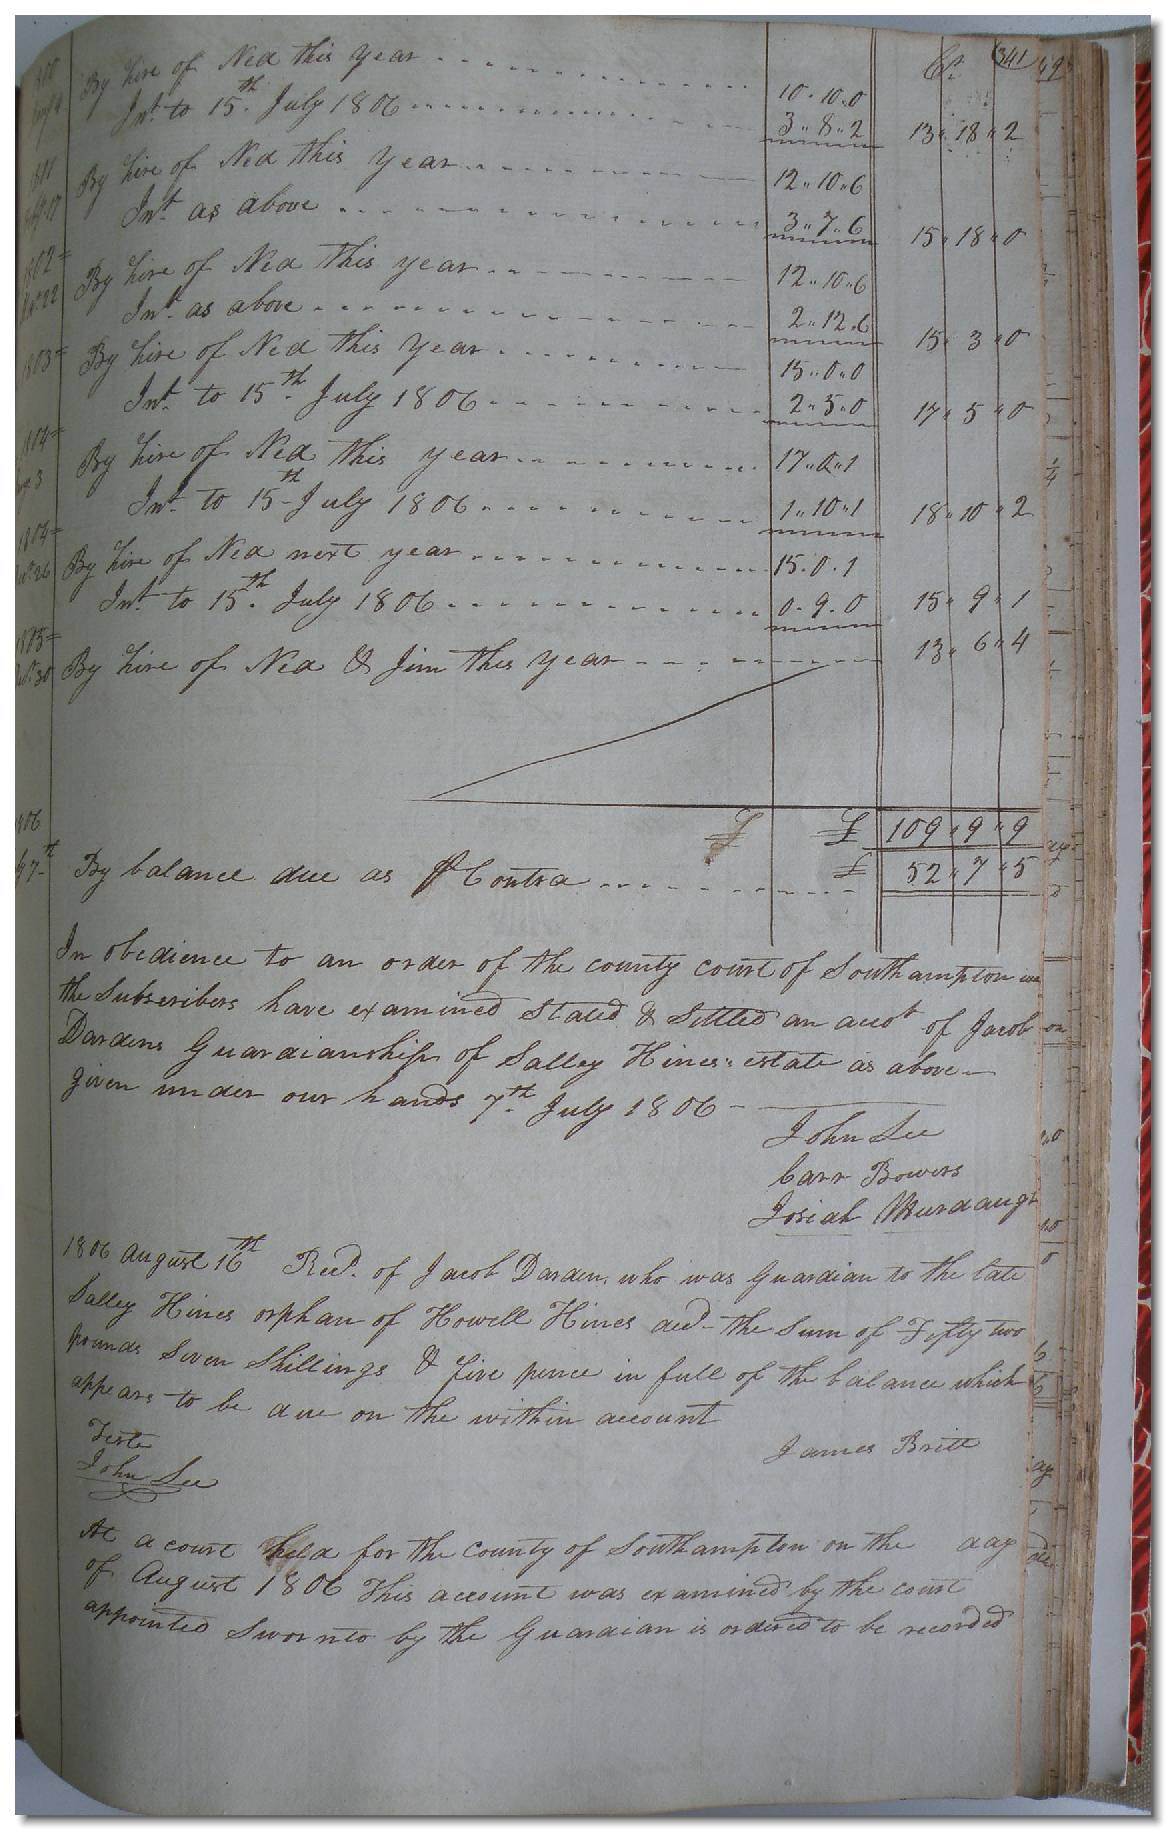 Cr. 341
By hire of Ned this year 10.10.0
Int. to 15th July 1806 3..8..2 13..18..2
By hire of Ned this year 12..10..6
Int. as above 3..7..6 15..18..0
1802
By hire of Ned this year 12..10..6
Int. as above 2..12.6 15..3..0
1803
By hire of Ned this year 15..0..0
Int. to 15th July 1806 2..5.0 17..5..0
1804
By hire of Ned this year 17..0..1
Int. to 15th July 1806 1..10..1 18..10..2
1804
By hire of Ned next year 15.0.1
Int. to 15th July 1806 0.9.0 15..9..1
1805
By hire of Ned & Jim this year 13..6..4
£ £ 109..9..9
By balance due as Contra £ 52..7..5
In obedience to an order of the county court of Southampton we
the Subscribers have examined Stated & Settled an acct of Jacob
Dardens Guardianship of Salley Hines estate as above
given under our hands 7th July 1806
John Lee
Carr Bowers
Josiah Murdaugh
1806 August 16th Recd. of Jacob Darden, who was Guardian to the late
Salley Hines orphan of Howell Hines decd. the Sum of Fifty two
pounds Seven Shillings & five pence in full of the balance which
appears to be due on the within account
James Britt
Teste
John Lee
At a court held for the County of Southampton on the day
of August 1806 This account was examined by the court
appointed Sworn to by the Guardian is ordered to be recorded